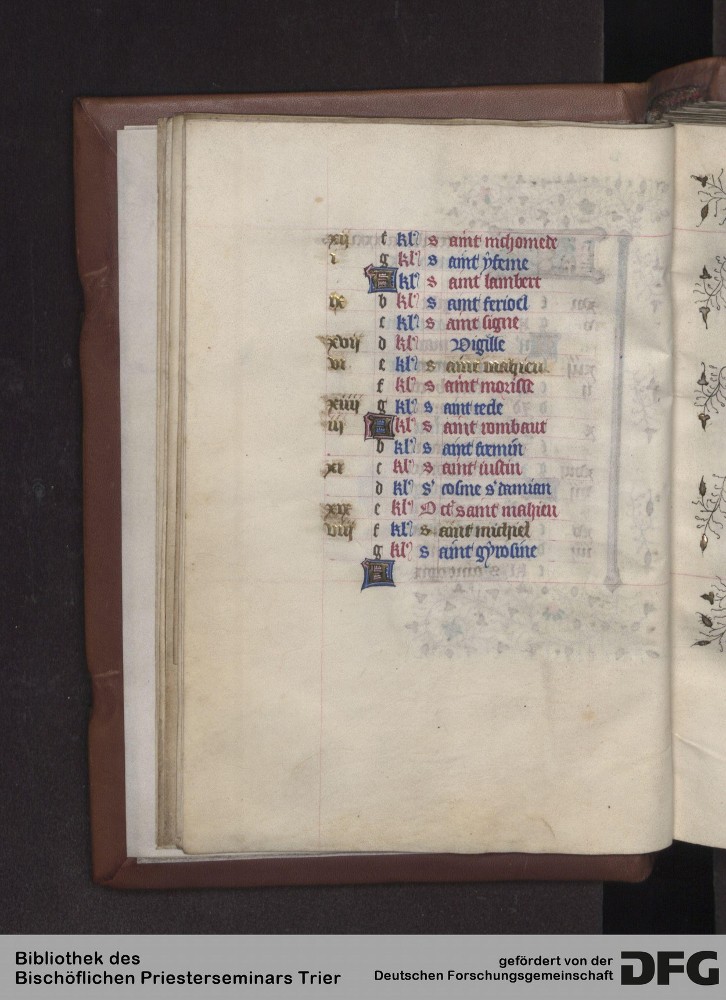 xij f kl' s aint nichomede
i g kl' s aint yfeme
A kl' s aint lambert
ix b kl' s aint feriocl
c kl' s aint signe
xvij d kl' Vigille
vi e kl' s aint mahieu
f kl' s aint morisse
xiiij g kl' s aint tecle
iij A kl' s aint rombaut
b kl' s aint fremin
xi c kl' s aint iustin
d kl' s' cosme s' damian
xix e kl' Oct' saint mahieu
viij f kl' s aint michiel
g kl' s aint gyrosme
A
Bibliothek des
Bischöflichen Priesterseminars Trier
gefördert von der
Deutschen Forschungsgemeinschaft
DFG